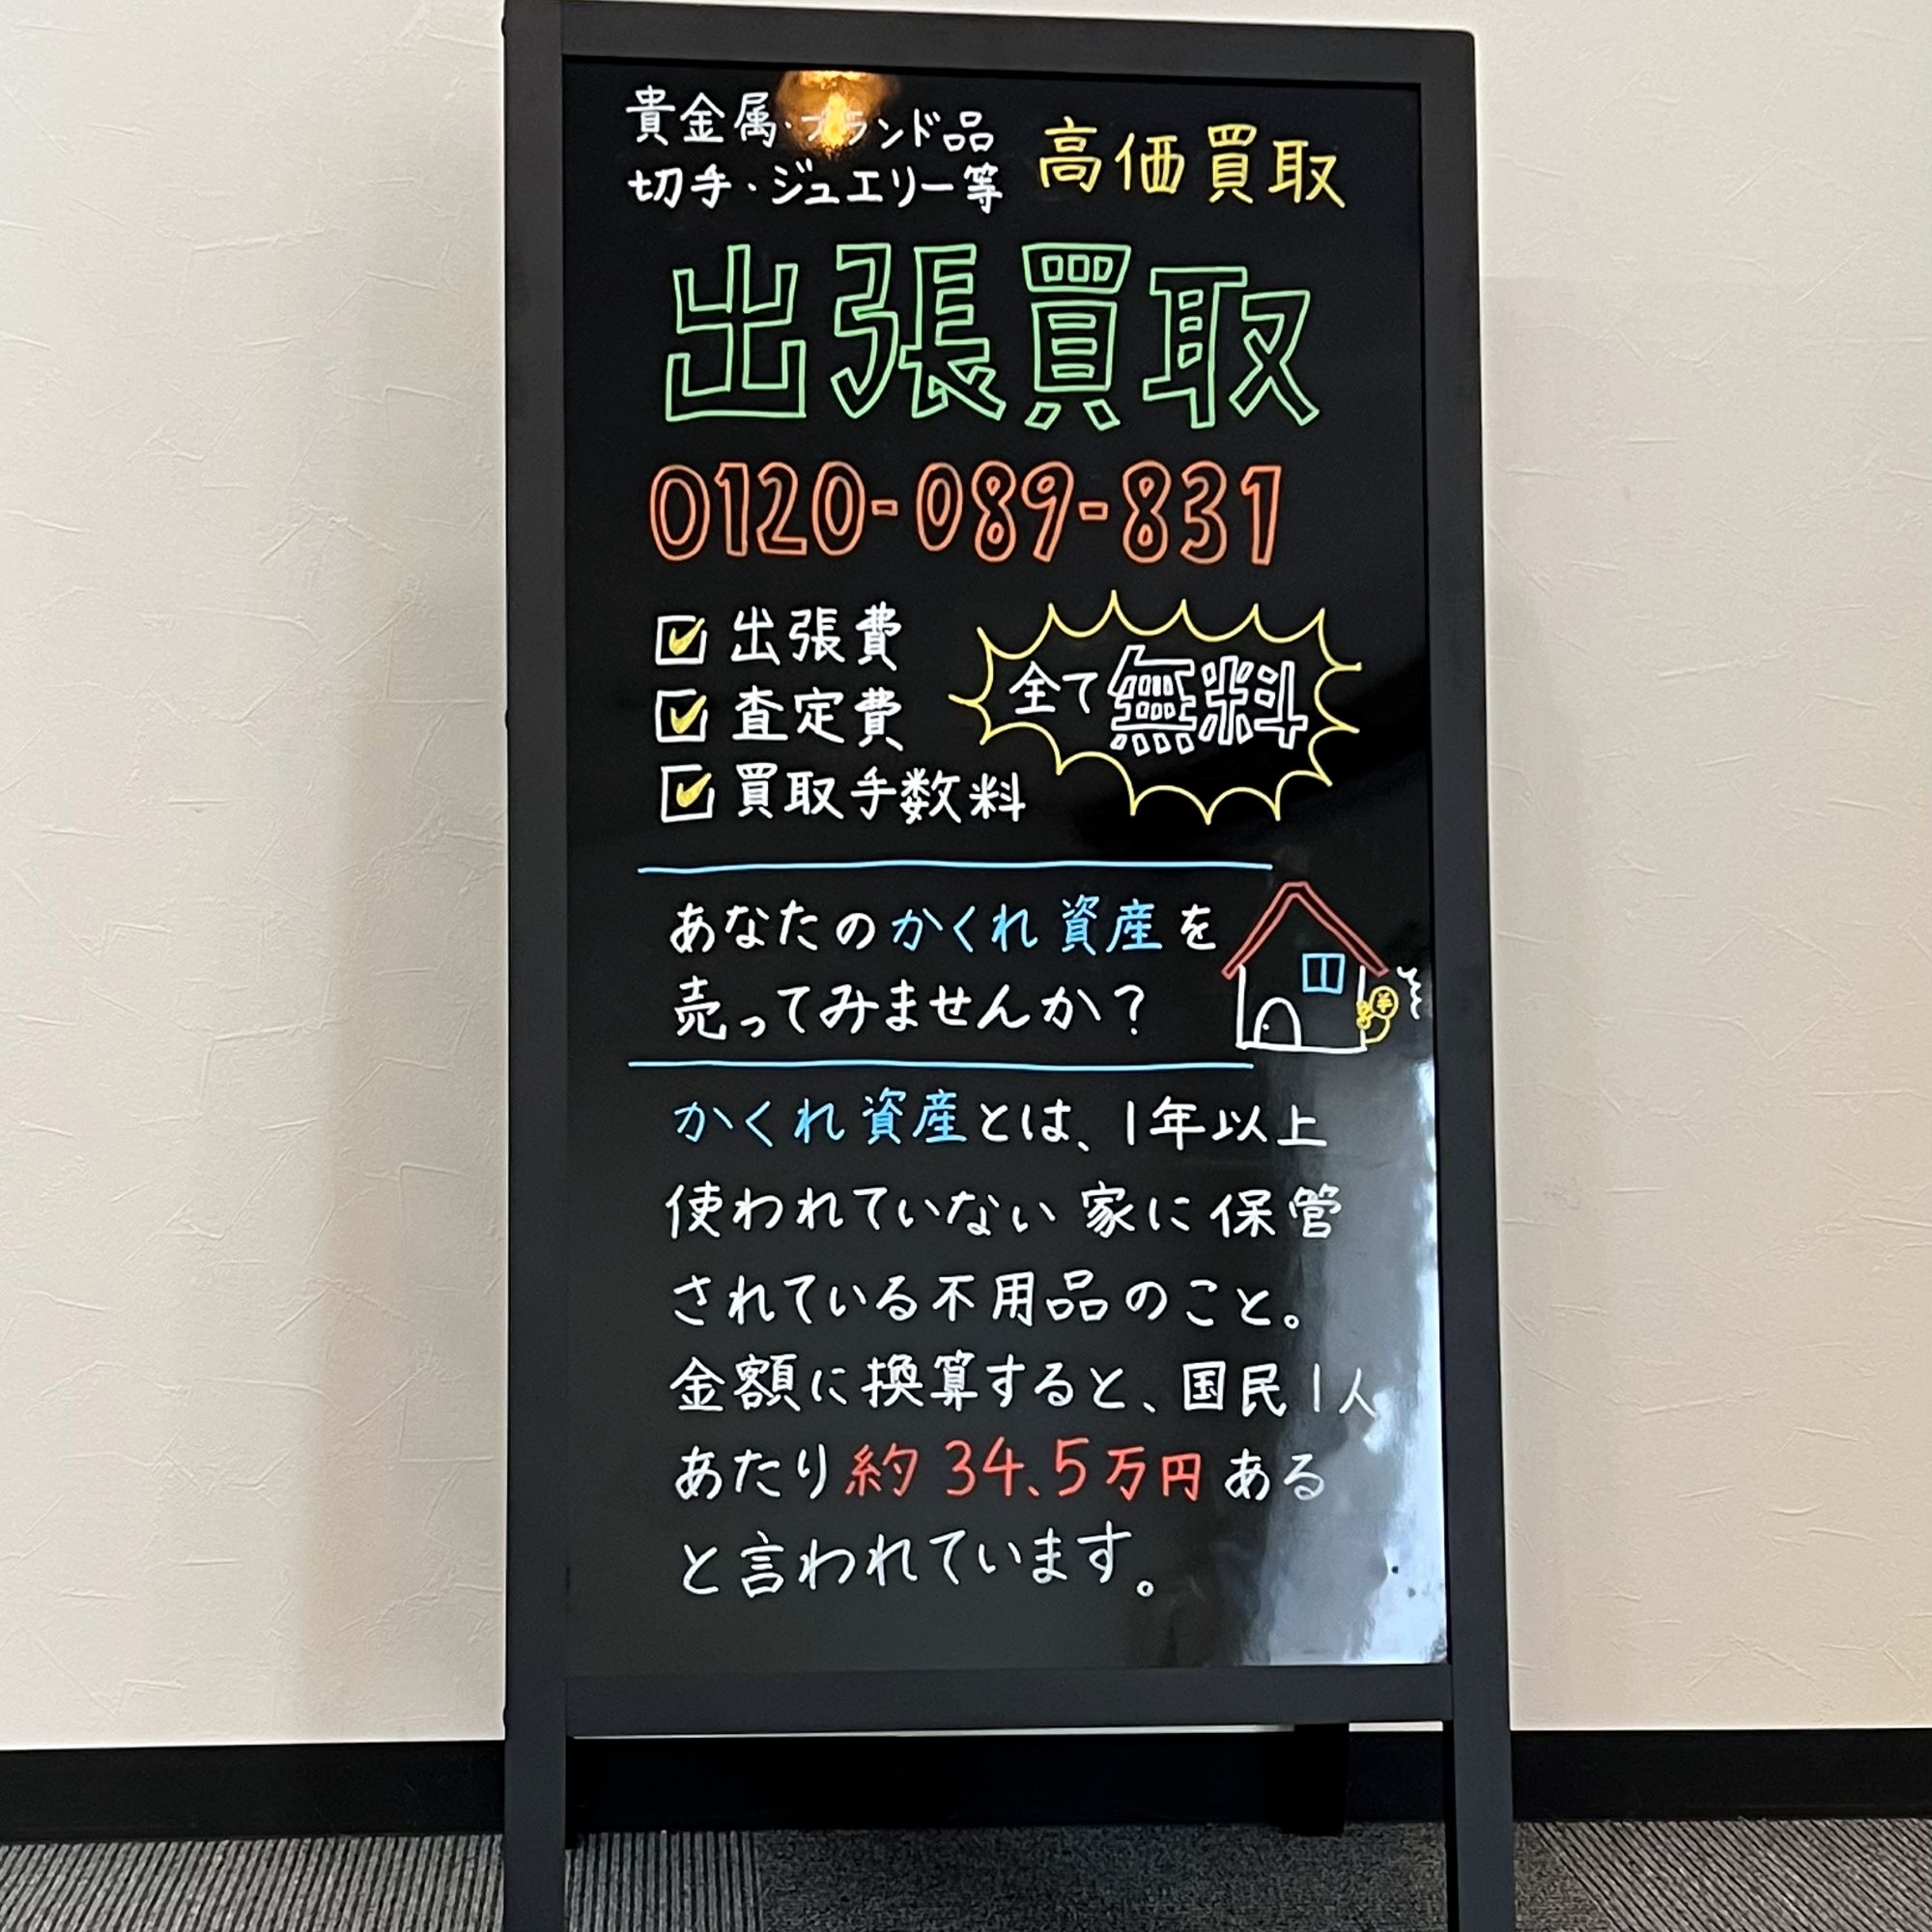 貴金属・ブランド品
切手・ジュエリー等
高価買取
出張買取
0120-089-831
出張費
査定費
買取手数料
全て無料
あなたのかくれ資産を
売ってみませんか？
¥
かくれ資産とは、1年以上
使われていない家に保管
されている不用品のこと。
金額に換算すると、国民1人
あたり約34.5万円ある
と言われています。